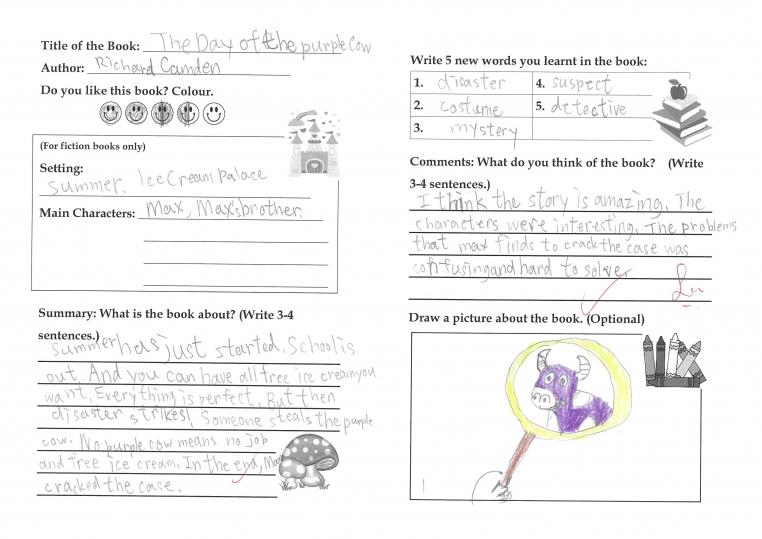 Title of the Book: The Day of the purple Cow
Author: Richard Camden
Do you like this book? Colour.
(For fiction books only)
Setting:
summer. Ice Cream Palace
Main Characters: Max, Max's brother.
Summary: What is the book about? (Write 3-4
sentences.)
Summer has just started. School is
out. And you can have all free ice cream you
want. Everything is perfect. But then
disaster strikes! Someone steals the purple
cow. No purple cow means no job
and free ice cream. In the end, Max
cracked the case.
Write 5 new words you learnt in the book:
1. disaster
4. suspect
2. costume
5. detective
3. mystery
Comments: What do you think of the book? (Write
3-4 sentences.)
I think the story is amazing. The
characters were interesting. The problems
that max finds to crack the case was
confusing and hard to solve.
Draw a picture about the book. (Optional)